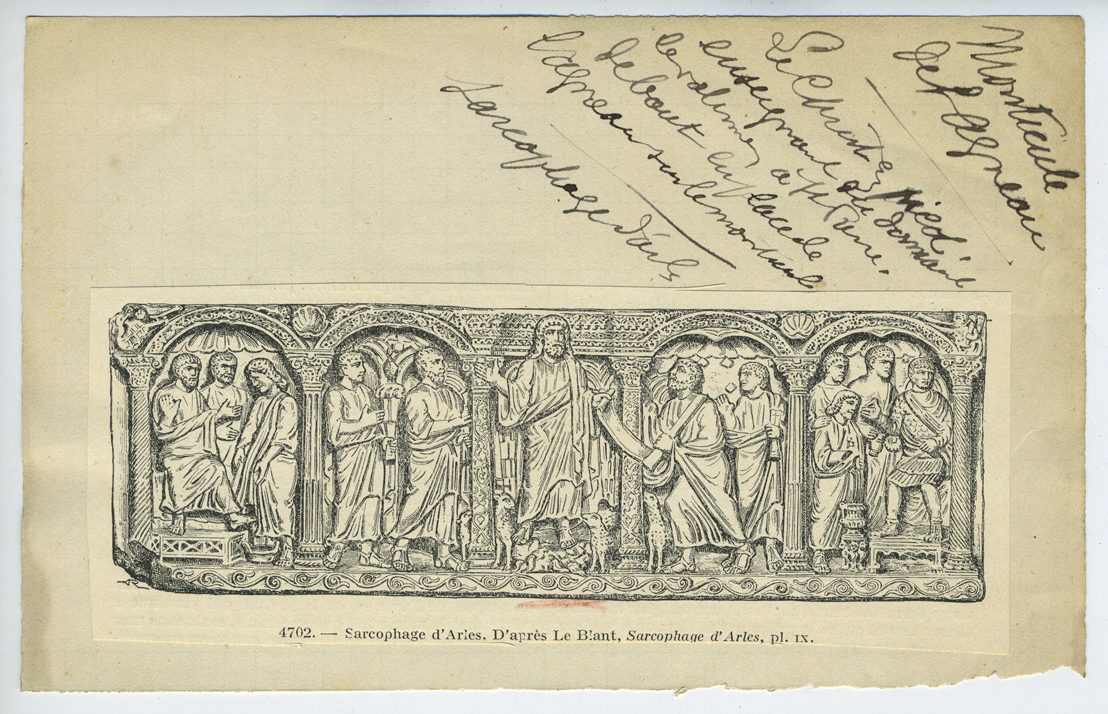 Monticule
de l'Agneau.
Le Christ en pied
enseignant ou donnant
le volumen a St Pierre.
debout en place de
l'agneau sur le monticule
Sarcophage d'Arles
4702. — Sarcophage d'Arles. D'après Le Blant, Sarcophage d'Arles, pl. IX.